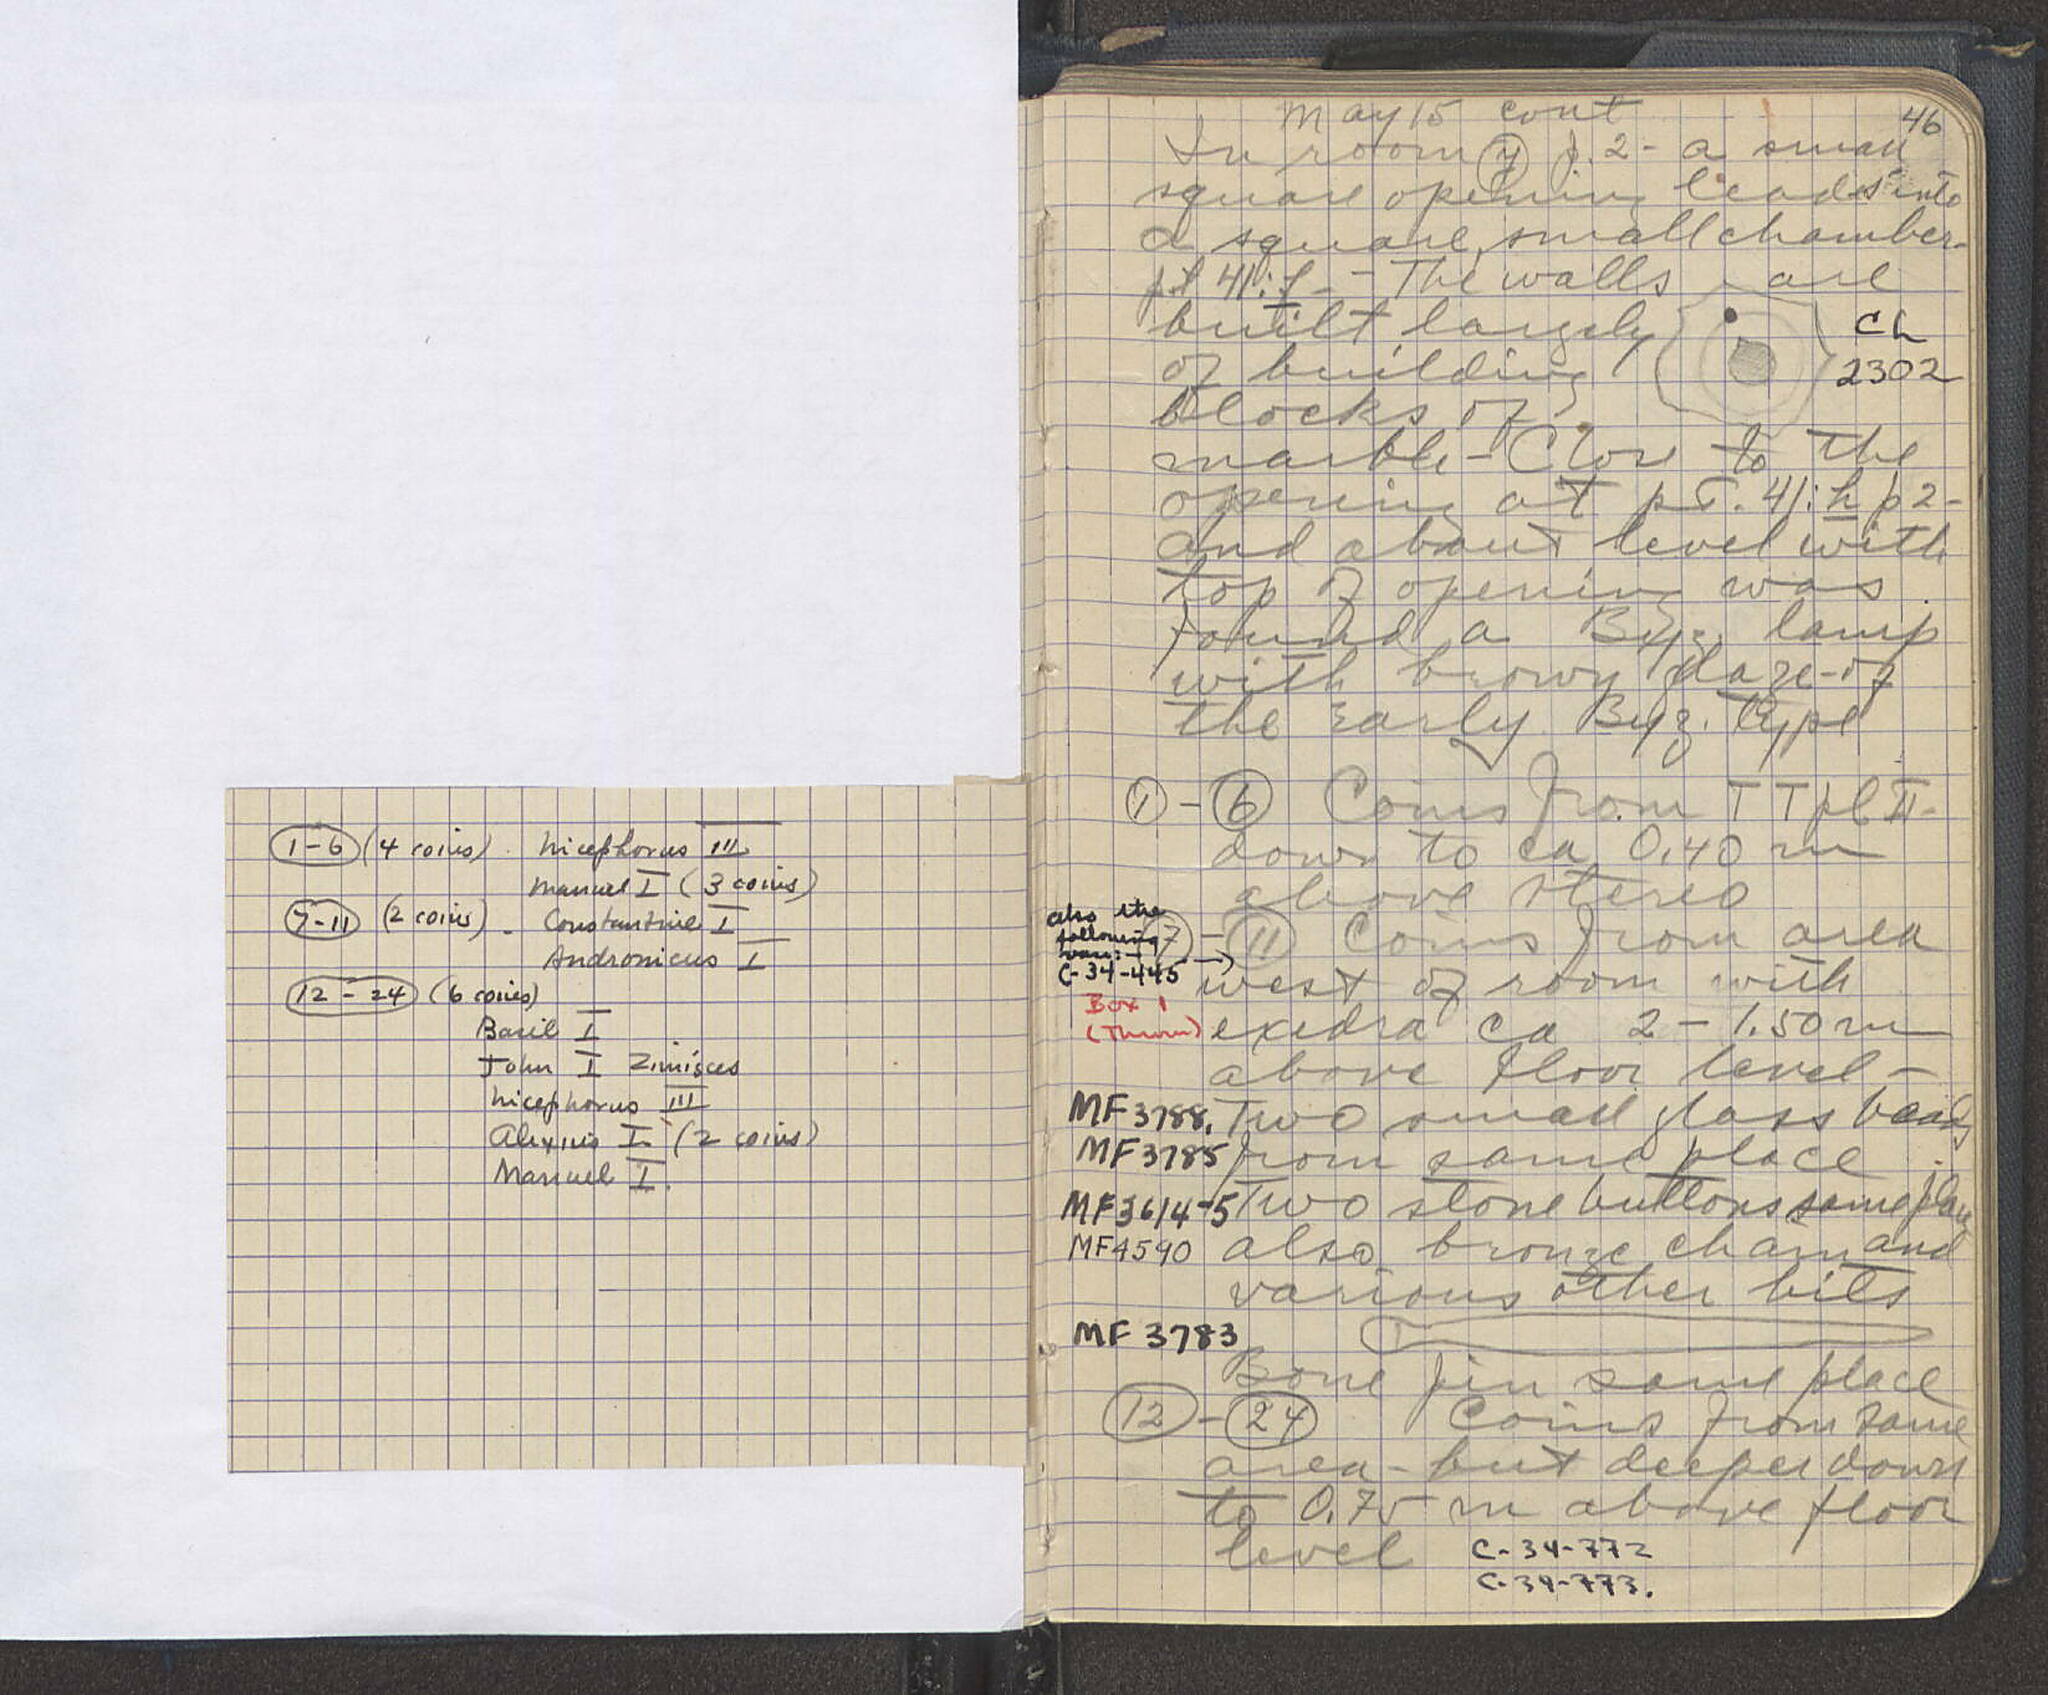 1-6 (4 coins). Nicephorus III
Manuel I (3 coins)
7-11 (2 coins). Constantine I
Andronicus I
12-24 (6 coins)
Basil I
John I Zimisces
Nicephorus III
Alexius I (2 coins)
Manuel I.
May 15 cont
46
In room 7 p. 2- a small
square opening leads into
a square, small chamber-
pt 41:f- The walls are
built largely
of building
blocks of
marble- Close to the
opening at pt. 41:h p 2-
and about level with
top of opening was
found a Byz. lamp
with brown glaze- of
the Early Byz. type
CL
2302
1-6 Coins from TT pl II-
down to ca 0.40 m
above stereo
also the
following
vase:-
C-34-445
Box 1
(Thrown)
7-11 Coins from area
west of room with
exedra ca 2-1.50 m
above floor level-
MF 3788. Two small glass beads
MF 3785 from same place
MF3614-5 Two stone buttons same place
MF4590 also bronze chain and
various other bits
MF 3783
Bone pin same place
12-24 Coins from same
area- but deeper down
to 0.75 m above floor
level
C-34-772
C-34-773.